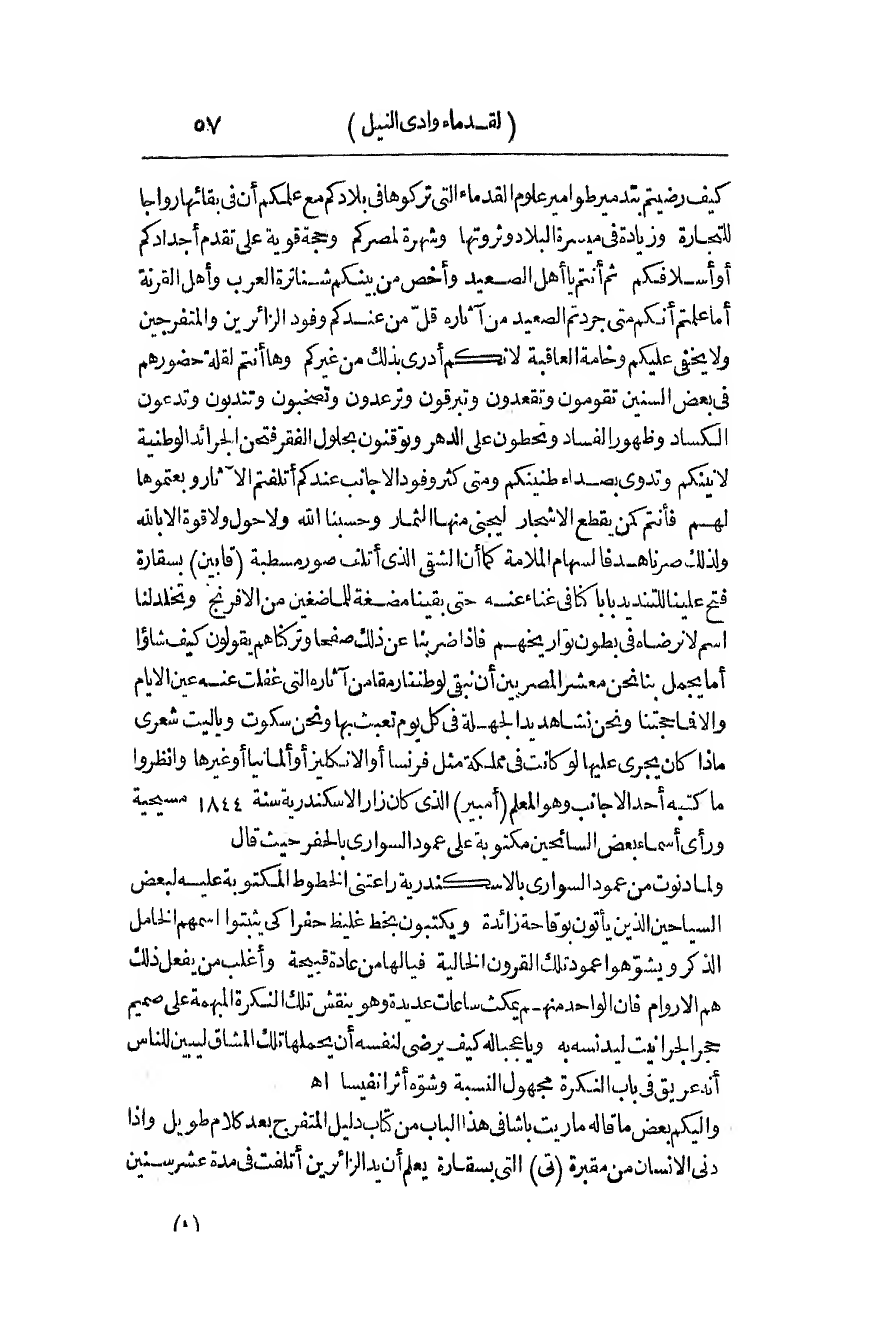 (لقدماء وادى النيل) ٥٧
كيف رضيتم بتدمير طوامير علوم القدماء التى تركوها فى بلادكم مع علمكم أن فى بقائها رواجا
للتجارة وزيادة فى ميسرة البلاد وثروتها وشهرة لمصركم وحجة قوية على تقدم أجدادكم
أو أسلافكم ثم أنتم يا أهل الصعيد وأخص من بينكم شناترة العرب وأهل القرنة
أما علمتم أنكم متى جردتم الصعيد من آثاره قلّ من عندكم وفود الزائرين والمتفرجين
ولا يخفى عليكم وخامة العاقبة لانكم أدرى بذلك من غيركم وها أنتم لقلة حضورهم
فى بعض السنين تقومون وتقعدون وتبرقون وترعدون وتصخبون وتندبون وتدعون
الكساد وظهور الفساد وتحطون على الدهر وتوقنون بحلول الفقر فتحن الجرائد الوطنية
لانينكم وتدوى بصداء طنينكم ومتى كثر وفود الاجانب عندكم أتلفتم الآثار وبعتموها
لهم فأنتم كمن يقطع الاشجار ليجنى منها الثمار وحسبنا الله ولا حول ولا قوة الا بالله
ولذلك صرنا هدفا لسهام الملامة كما أن الشقى الذى أتلف صور مسطبة (قابين) بسقارة
فتح علينا للتنديد بابا كنا فى غناء عنه حتى بقينا مضغة للماضغين من الافرنج وتخلد لنا
اسم لا نرضاه فى بطون تواريخهم فاذا ضربنا عن ذلك صفحا وتركناهم يقولون كيف شاؤا
أما يجمل بنا نحن معشر المصريين أن نبقى لوطننا رمقا من آثاره التى غفلت عنه عين الايام
والا فما حجتنا ونحن نشاهد يد الجهلة فى كل يوم تعبث بها ونحن سكوت وياليت شعرى
ماذا كان يجرى عليها لو كانت فى مملكة مثل فرنسا أو الانكليز أو ألمانيا أو غيرها وانظروا
ما كتبه أحد الاجانب وهو المعلم (أمبير) الذى كان زار الاسكندرية سنة ١٨٤٤ مسيحية
ورأى أسماء بعض السائحين مكتوبة على عمود السوارى بالحفر حيث قال
ولما دنوت من عمود السوارى بالاسكندرية راعتنى الخطوط المكتوبة عليه لبعض
السياحين الذين يأتون بوقاحة زائدة ويكتبون بخط غليظ حفرا كى يثبتوا اسمهم الخامل
الذكر ويشوّهوا عمود تلك القرون الخالية فيالها من عادة قبيحة وأغلب من يفعل ذلك
هم الاروام فان الواحد منهم يمكث ساعات عديدة وهو ينقش تلك النكرة المبهمة على صميم
حجر الجرانيت ليدنسه به وياعجباله كيف يرضى لنفسه أن يحملها تلك المشاق ليبين للناس
أنه عريق فى باب النكرة مجهول النسبة وشوّه أثرا نفيسا اه
واليكم بعض ما قاله ماريت باشا فى هذا الباب من كتاب دليل المتفرج بعد كلام طويل واذا
دنى الانسان من مقبرة (تى) التى بسقارة يعلم أن يد الزائرين أتلفت فى مدة عشر سنين
(٨)